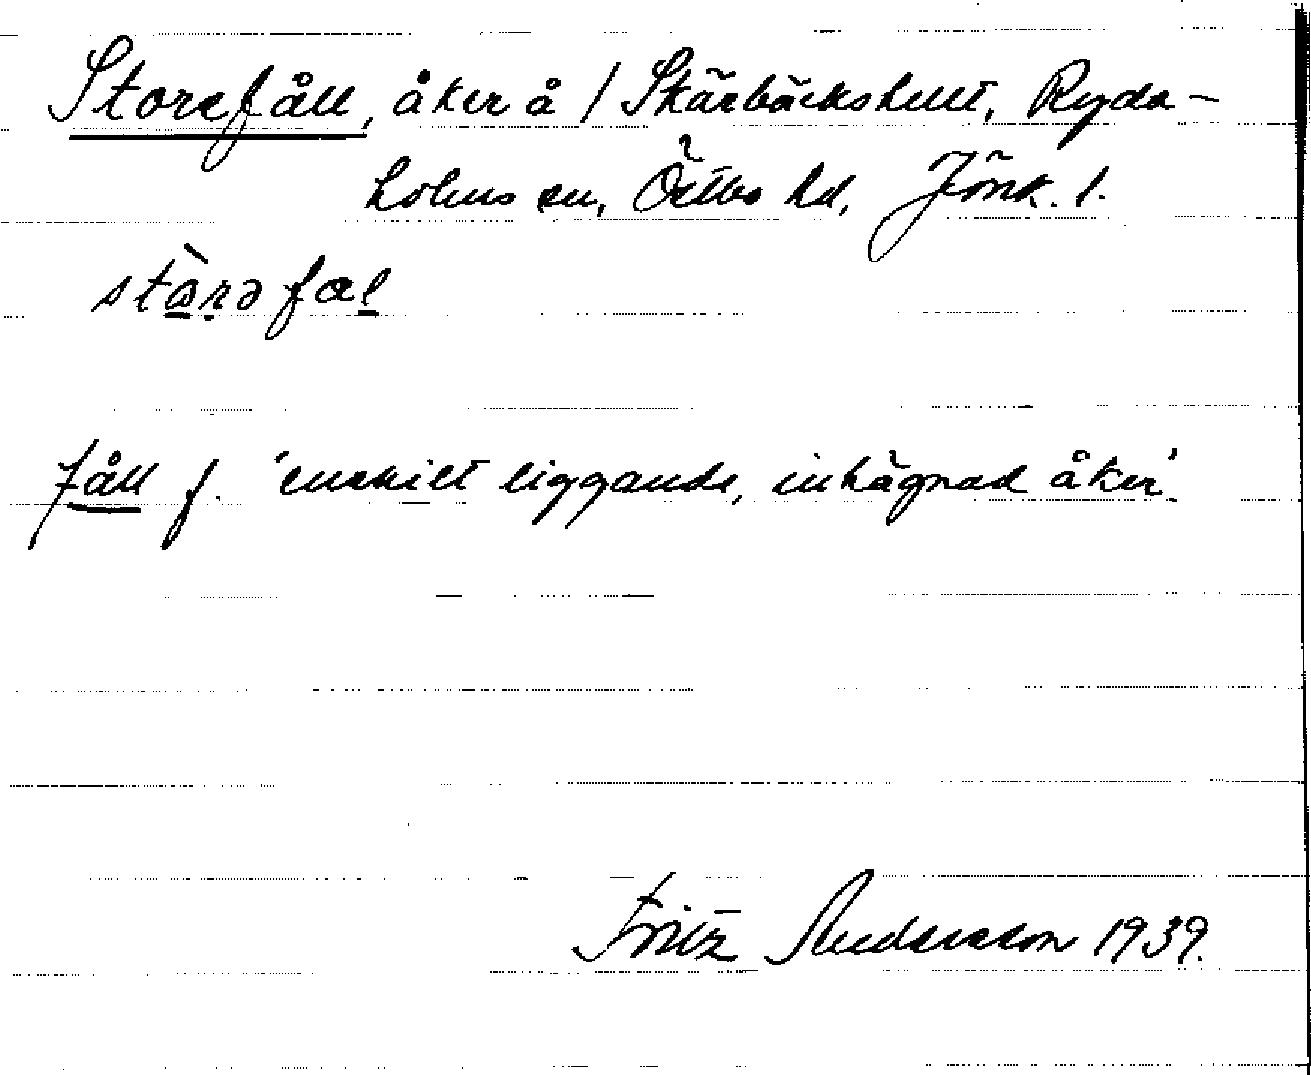 Storefåll, åker å / Skärbäckshult, Ryda-
holms sn, Östbo hd, Jönk. l.
stàrəfal
fåll f. 'enskilt liggande, inhägnad åker'.
Fritz Andersson 1939.